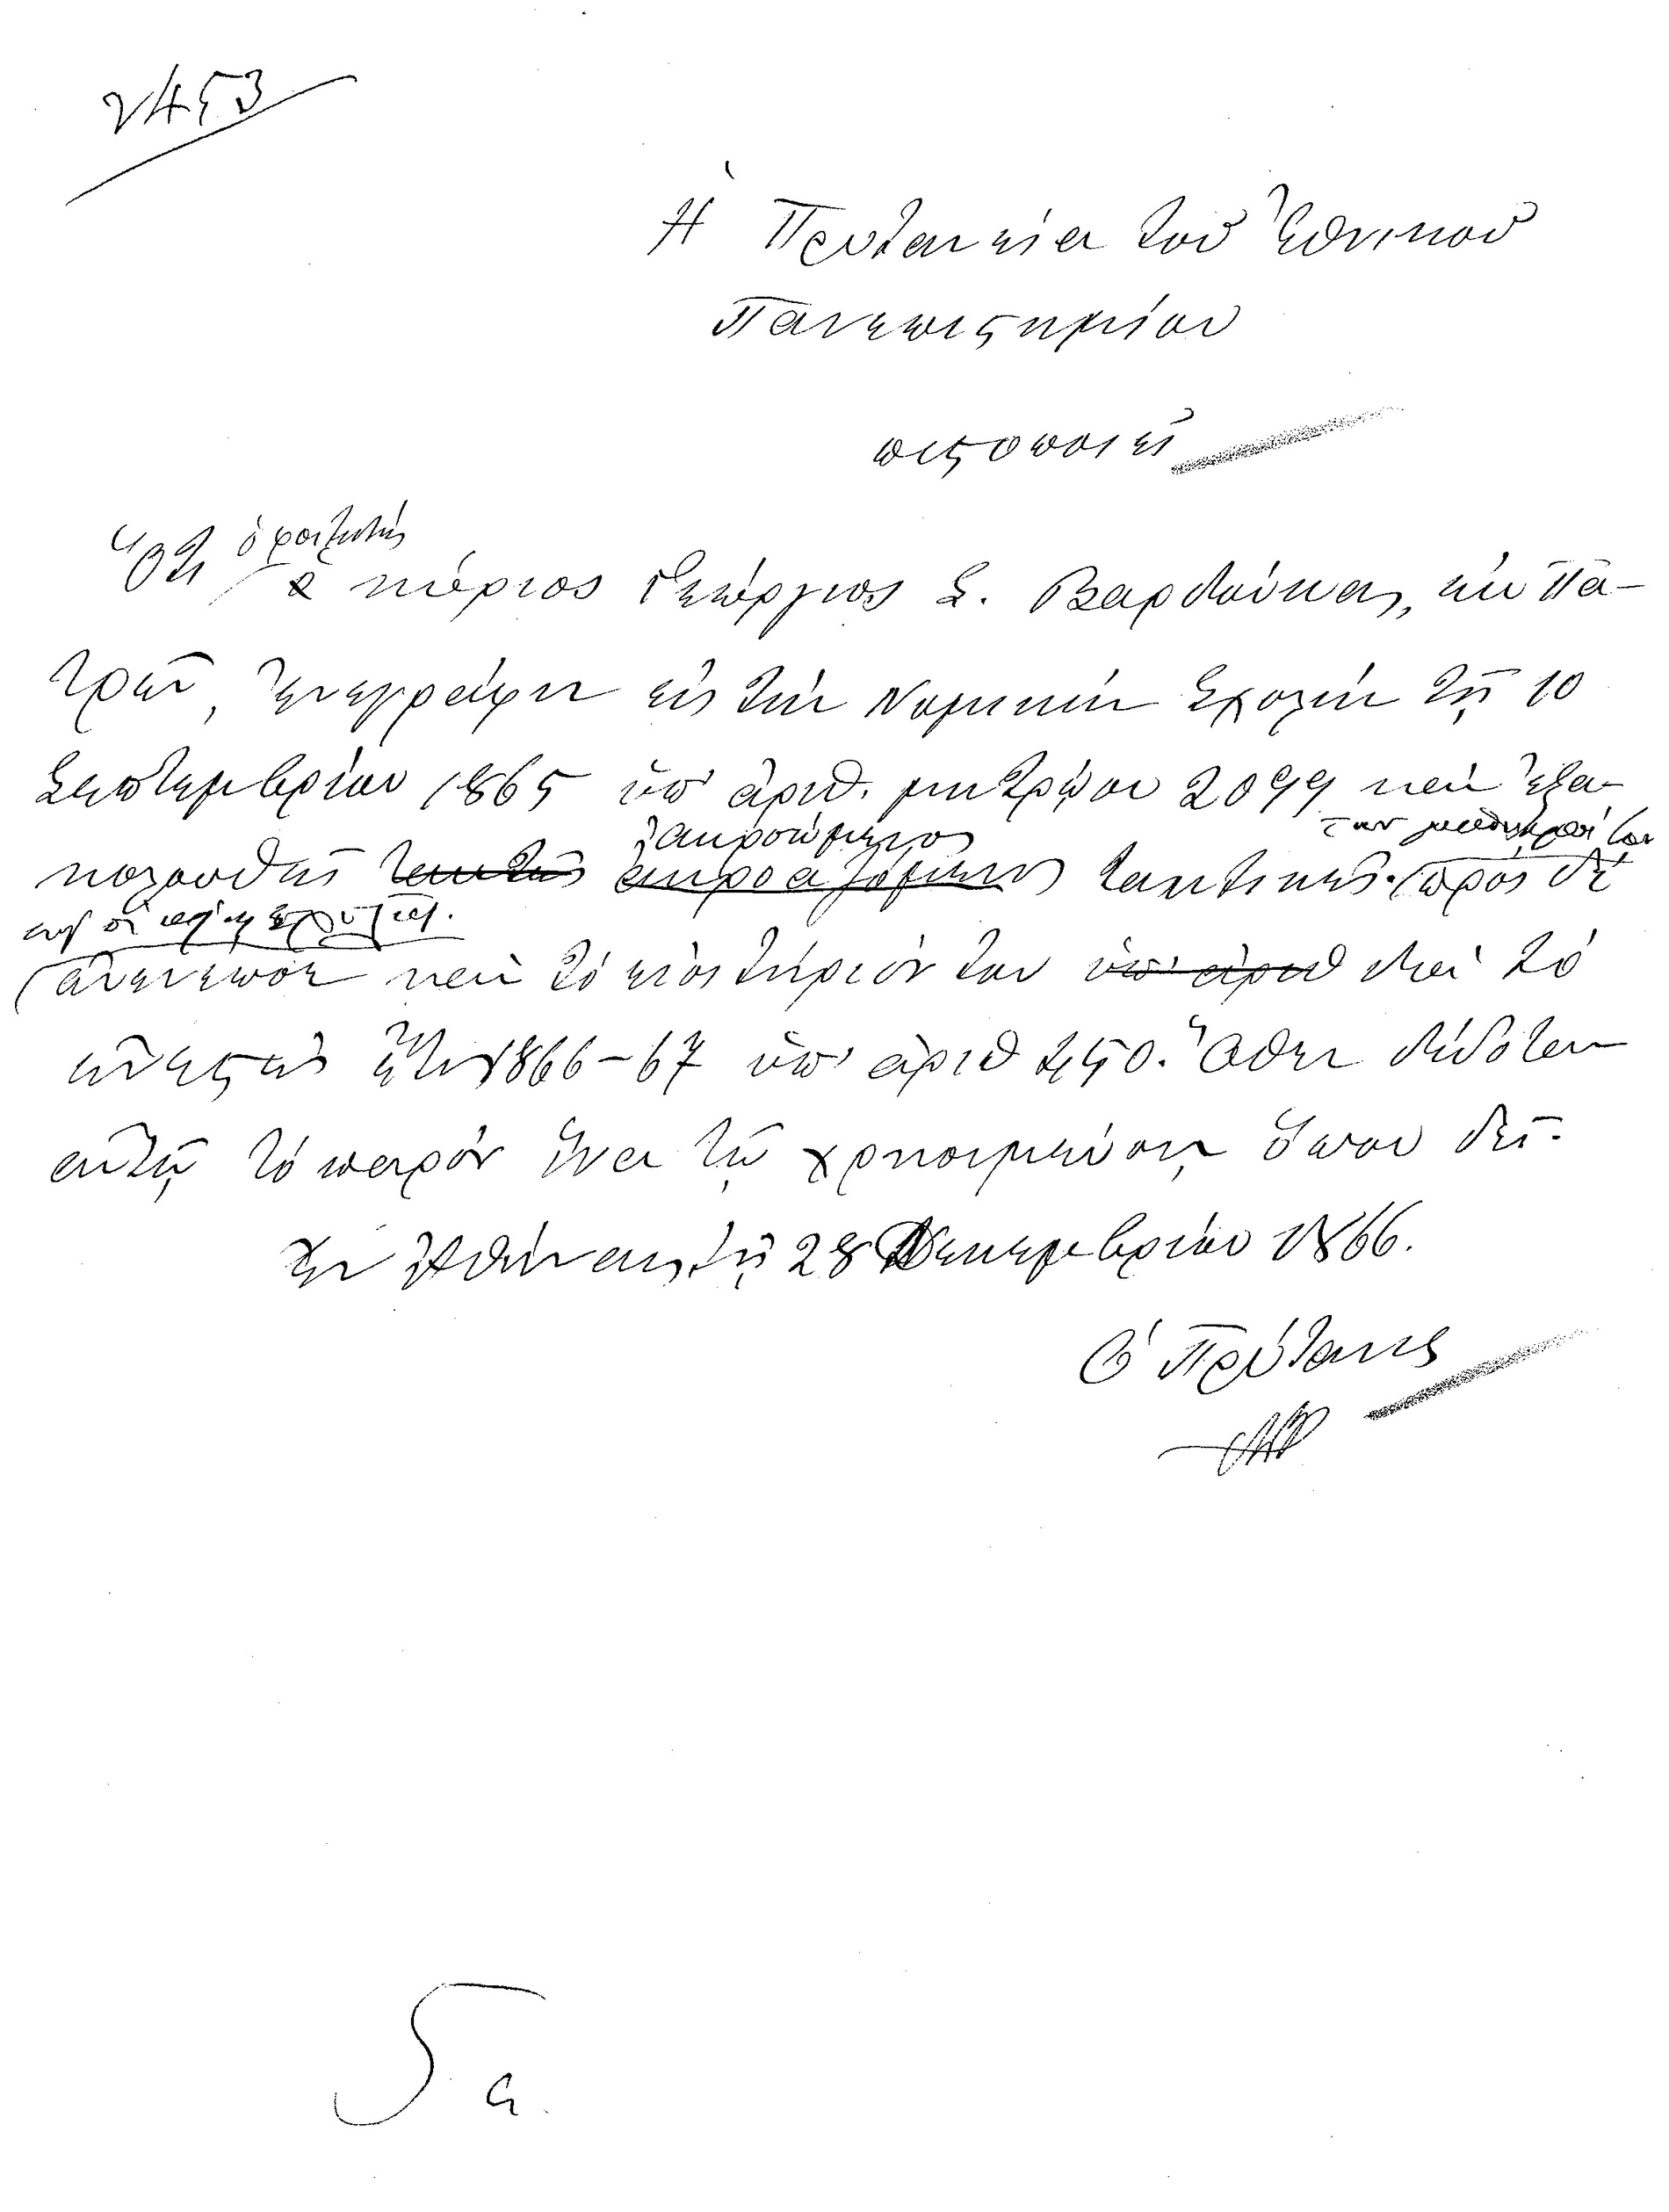 2453
Ἡ Πρυτανεία τοῦ Ἐθνικοῦ
Πανεπιςημίου
πιςοποιεῖ
Ὅτι ὁ φοιτητής
ὁ κύριος Γεώργιος Σ. Βαρδούκας, ἐκ Πα-
τρῶν, ἐνεγράφη εἰς τὴν Νομικὴν Σχολὴν τῇ 10
Σεπτεμβρίου 1865 ὑπ' ἀριθ. μητρῴου 2099 καὶ ἐξα-
ἀκροώμενος
τῶν μαθημάτων
κολουθεῖ τακτικῶς. πρὸς δὲ
ἀνενέωσε καὶ τὸ εἰσιτήριόν του ὑπ' ἀριθ διὰ τὸ
ἐνεςὼς ἔτος 1866-67 ὑπ' ἀριθ 450. Ὅθεν δίδοται
αὐτῷ τὸ παρὸν ἵνα τῷ χρησιμεύσῃ ὅπου δεῖ.
Ἐν Ἀθήναις, τῇ 28 Δεκεμβρίου 1866.
Ὁ Πρύτανις